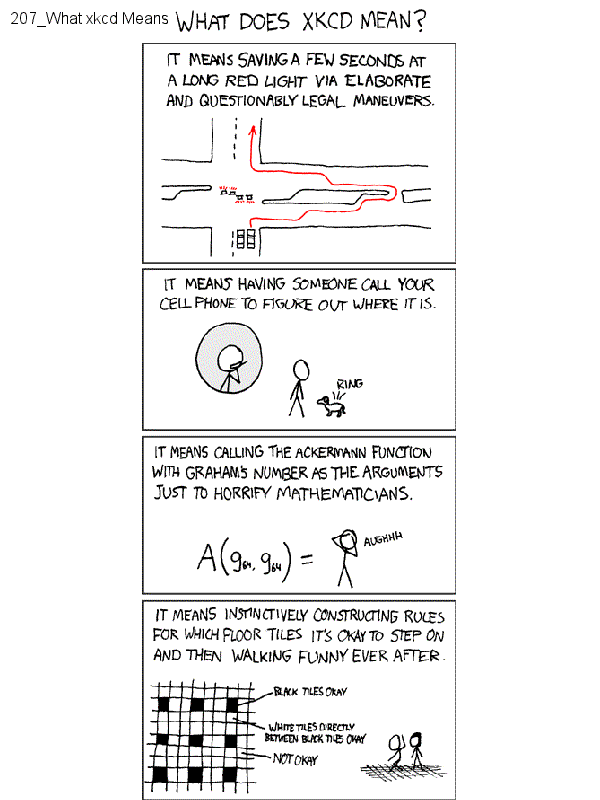 207_What xkcd Means
WHAT DOES XKCD MEAN?
IT MEANS SAVING A FEW SECONDS AT
A LONG RED LIGHT VIA ELABORATE
AND QUESTIONABLY LEGAL MANEUVERS.
IT MEANS HAVING SOMEONE CALL YOUR
CELL PHONE TO FIGURE OUT WHERE IT IS.
RING
IT MEANS CALLING THE ACKERMANN FUNCTION
WITH GRAHAM'S NUMBER AS THE ARGUMENTS
JUST TO HORRIFY MATHEMATICIANS.
A(g₆₄, g₆₄) =
AUGHHH
IT MEANS INSTINCTIVELY CONSTRUCTING RULES
FOR WHICH FLOOR TILES IT'S OKAY TO STEP ON
AND THEN WALKING FUNNY EVER AFTER.
BLACK TILES OKAY
WHITE TILES DIRECTLY
BETWEEN BLACK TILES OKAY
NOT OKAY